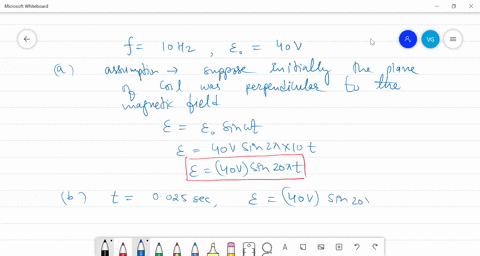 Microsoft Whiteboard
VG
f = 10 Hz , ε₀ = 40V
(a) assumption → suppose initially the plane
of coil was perpendicular to the
magnetic field
ε = ε₀ sin ωt
ε = 40V sin 2π×10 t
ε = (40V) sin 20πt
(b) t = 0.025 sec, ε = (40V) sin 20